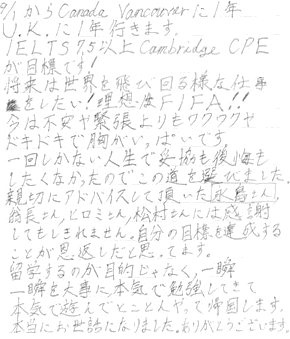 9/1 から Canada Vancouver に1年
U.K.に1年行きます。
IELTS 7.5以上 Cambridge CPE
が目標です!
将来は世界を飛び回る様な仕事
をしたい!理想はFIFA!!
今は不安や緊張よりもワクワクや
ドキドキで胸がいっぱいです。
一回しかない人生で妥協も後悔も
したくなかったのでこの道を選びました。
親切にアドバイスして頂いた水島さん、
翁長さん、ヒロミさん、松村さんには感謝
してもしきれません。自分の目標を達成する
ことが恩返しだと思ってます。
留学するのが目的じゃなく、一瞬
一瞬を大事に本気で勉強してきて
本気で遊んでとことんやって帰国します。
本当にお世話になりました。ありがとうございます。